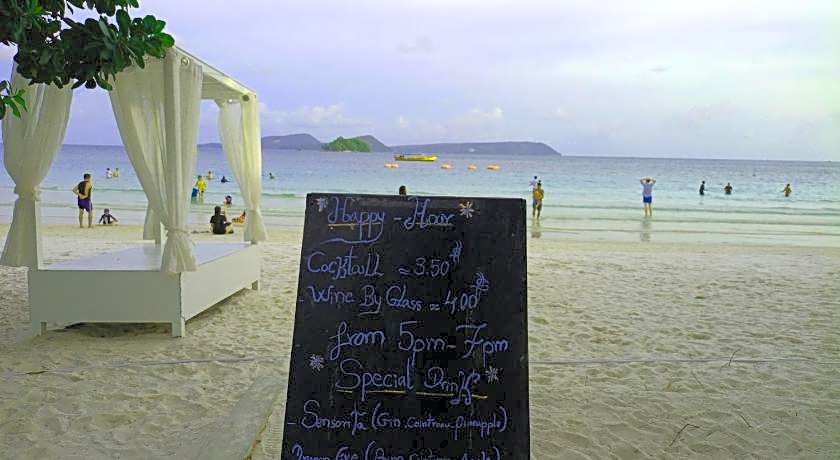 Happy - Hour
Cocktaill ≈ 3.50$
- Wine By Glass ≈ 4.00$
from 5pm - 7pm
Special Drink
- Sensonta (Gin, cointreau, pineapple)
Dragon Eye (